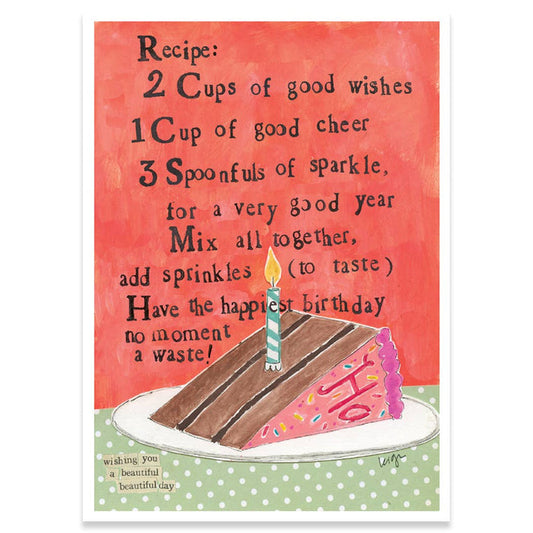 Recipe:
2 Cups of good wishes
1 Cup of good cheer
3 Spoonfuls of sparkle,
for a very good year
Mix all together,
add sprinkles (to taste)
Have the happiest birthday
no moment
a waste!
Ho
wishing you
a beautiful
beautiful day